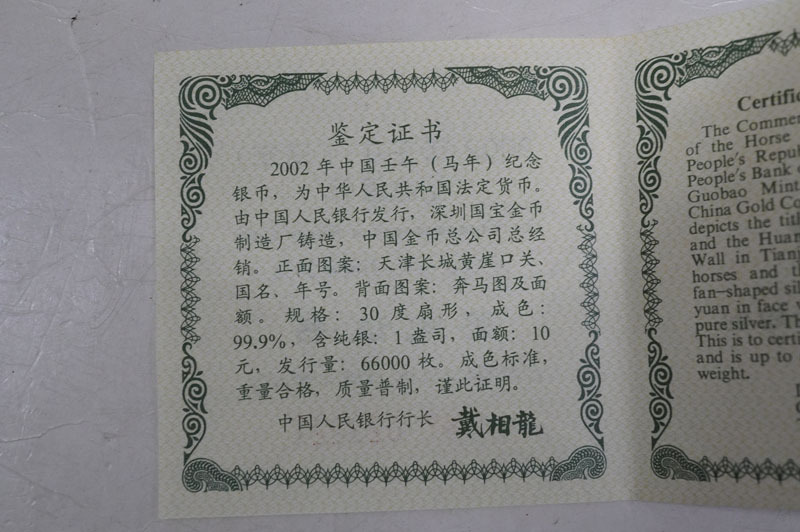 鉴定证书
2002 年中国壬午（马年）纪念
银币，为中华人民共和国法定货币。
由中国人民银行发行，深圳国宝金币
制造厂铸造，中国金币总公司总经
销。正面图案：天津长城黄崖口关、
国名、年号。背面图案：奔马图及面
额。规格：30 度扇形，成色：
99.9%，含纯银：1 盎司，面额：10
元，发行量：66000 枚。成色标准，
重量合格，质量普制，谨此证明。
中国人民银行行长 戴相龍
Certific
The Comme
of the Horse
People's Repu
People's Bank
Guobao Mint
China Gold Co
depicts the titl
and the Huan
Wall in Tianj
horses and th
fan-shaped sil
yuan in face v
pure silver. Th
This is to certi
and is up to
weight.